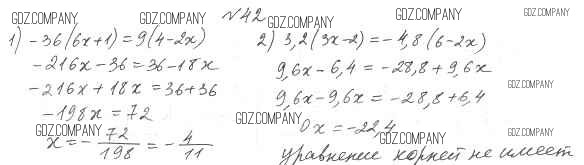 №42
1) -36(6x+1)=9(4-2x)
-216x-36=36-18x
-216x+18x=36+36
-198x=72
x=-72/198=-4/11
2) 3,2(3x-2)=-4,8(6-2x)
9,6x-6,4=-28,8+9,6x
9,6x-9,6x=-28,8+6,4
0x=-22,4
уравнение корней не имеет
GDZ.COMPANY
GDZ.COMPANY
GDZ.COMPANY
GDZ.COMPANY
GDZ.COMPANY
GDZ.COMPANY
GDZ.COMPANY
GDZ.COMPANY